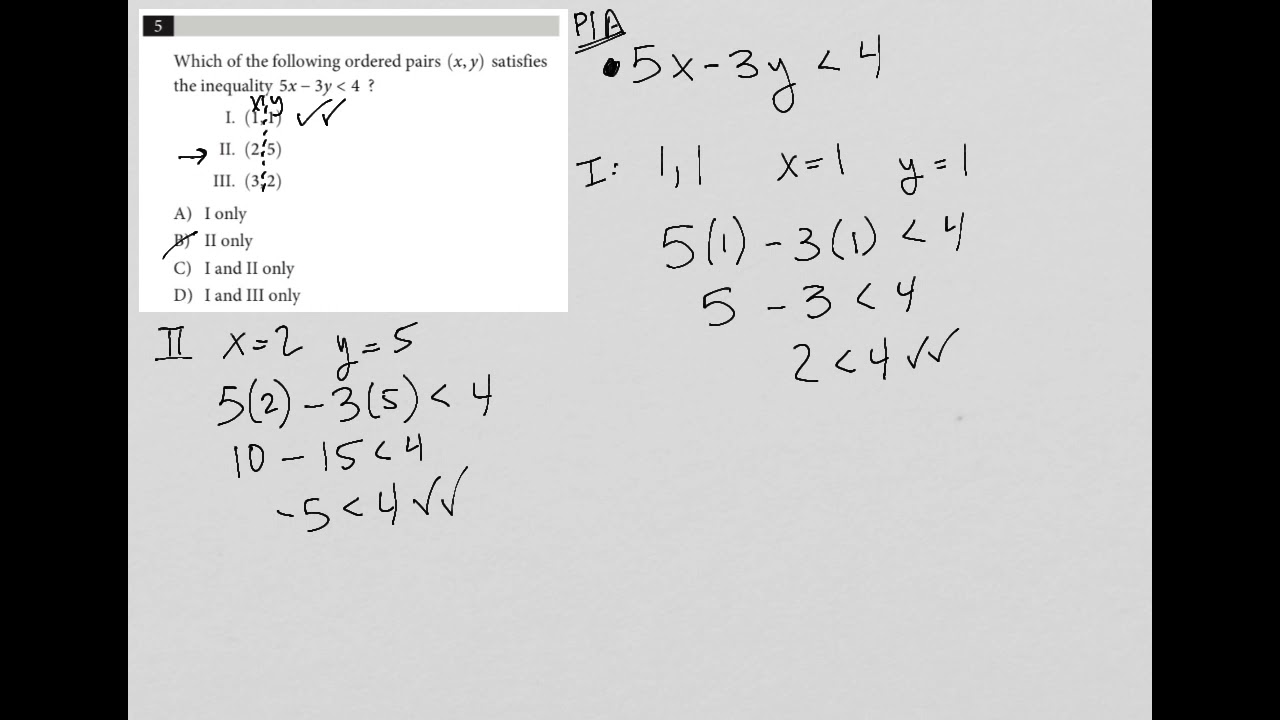 5
Which of the following ordered pairs (x, y) satisfies
the inequality 5x − 3y < 4 ?
x, y
I. (1, 1) ✓✓
→ II. (2, 5)
III. (3, 2)
A) I only
B) II only
C) I and II only
D) I and III only
II x = 2 y = 5
5(2) - 3(5) < 4
10 - 15 < 4
-5 < 4 ✓✓
PIA
• 5x - 3y < 4
I: 1, 1 x = 1 y = 1
5(1) - 3(1) < 4
5 - 3 < 4
2 < 4 ✓✓